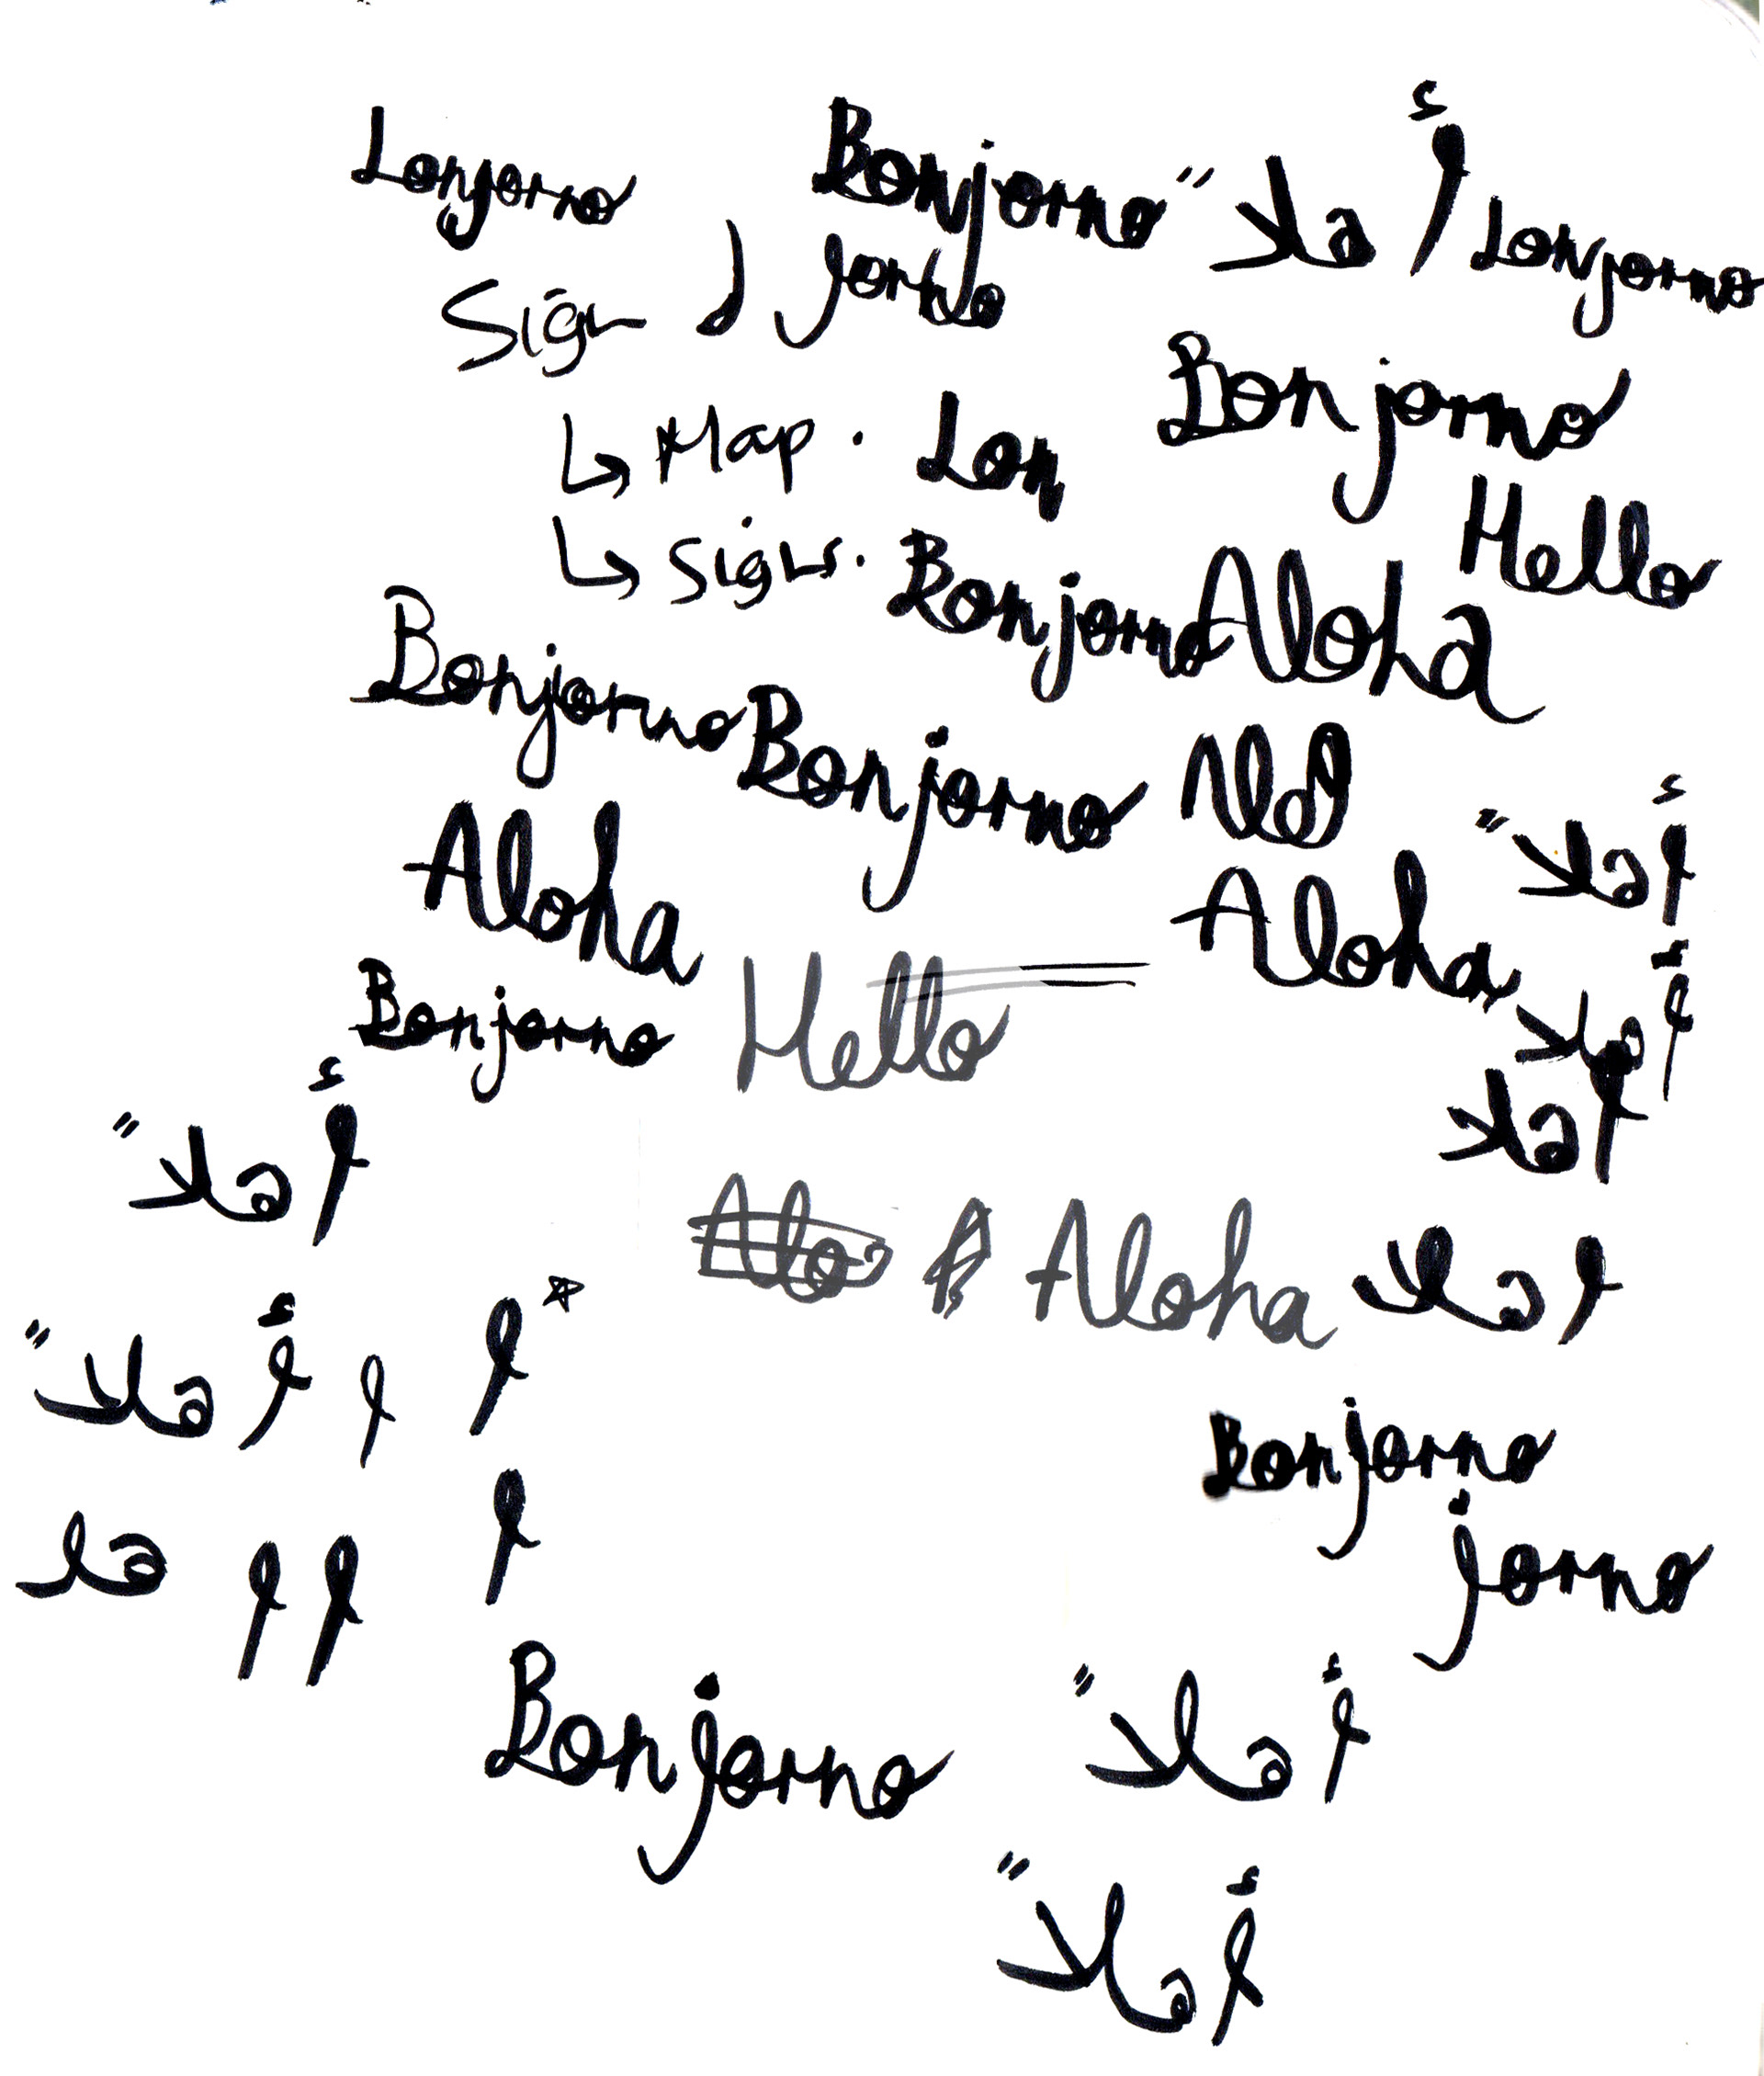 Lonjorno Bonjorno أهلاً Lonjorno
Sign J jorno
Bonjorno
↳ Map. Lon
Hello
↳ Signs. Bonjorno Aloha
Bonjorno Bonjorno
أهلاً
Aloha Aloha
Bonjorno Hello أهلاً
أهلا
أهلاً
Alo A Aloha أهلا
أهلاً أ ا ا
Bonjorno
هلا ا ا ا
jorno
Bonjorno أهلاً
أهلاً